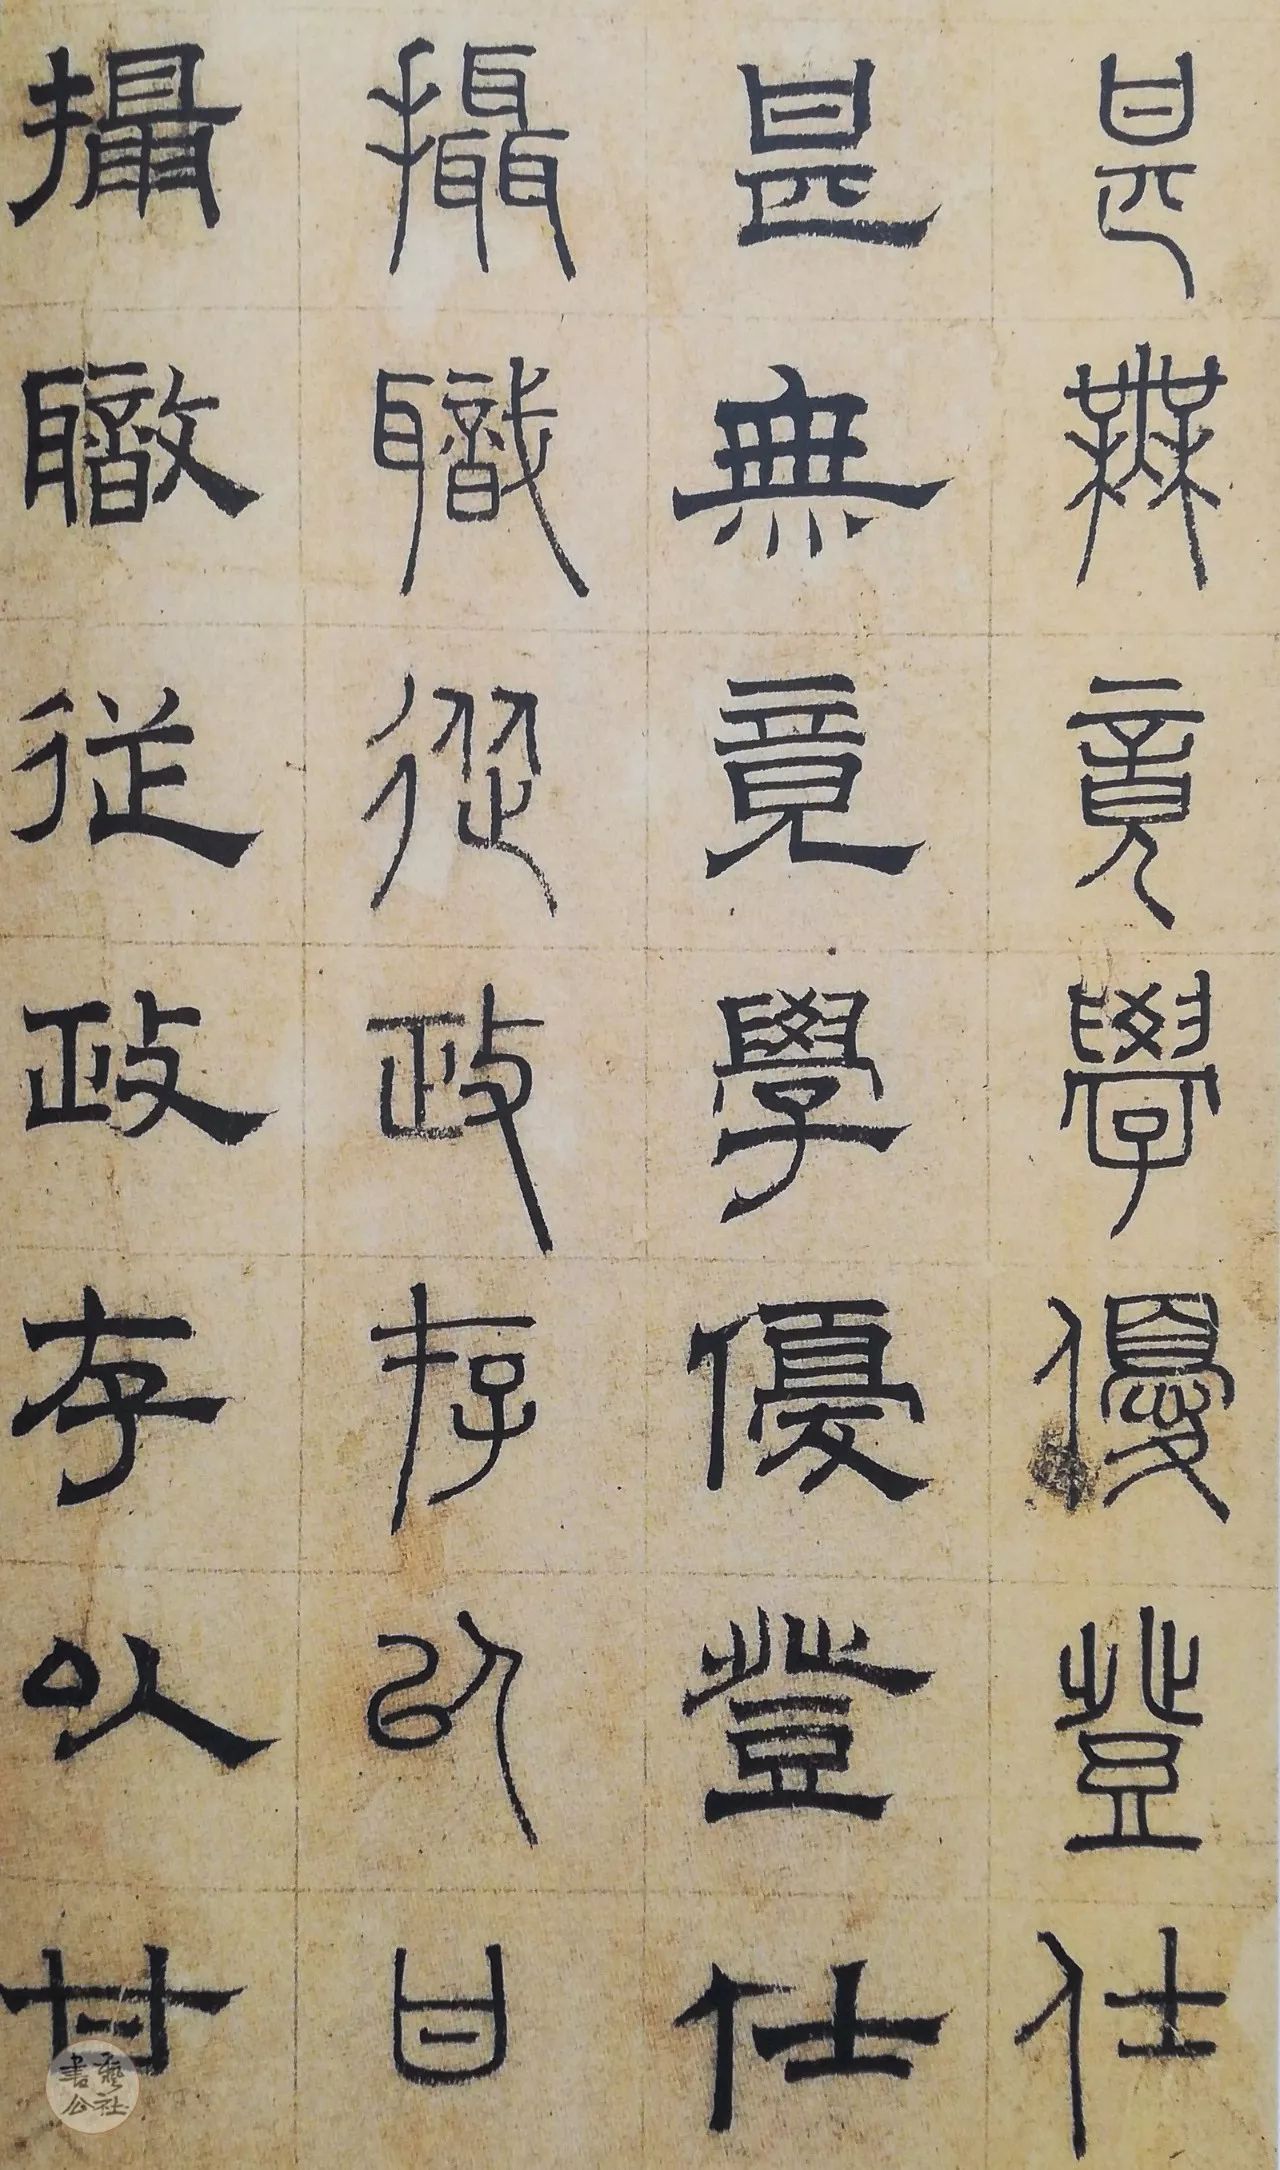 甚無竟學優登仕
甚無竟學優登仕
攝職從政存以甘
攝職從政存以甘
書藝公社